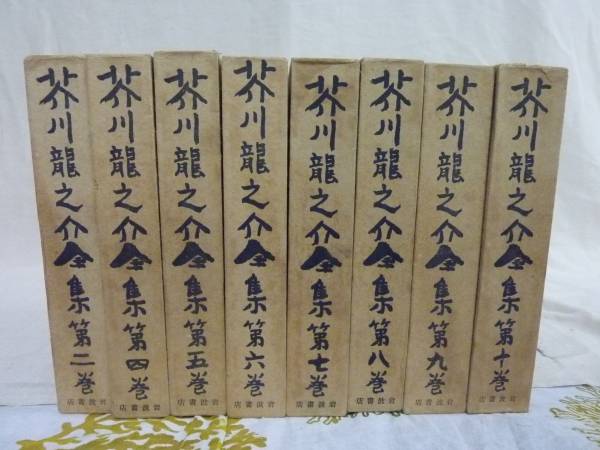 芥川龍之介全集第二巻
店書波岩
芥川龍之介全集第四巻
店書波岩
芥川龍之介全集第五巻
店書波岩
芥川龍之介全集第六巻
店書波岩
芥川龍之介全集第七巻
店書波岩
芥川龍之介全集第八巻
店書波岩
芥川龍之介全集第九巻
店書波岩
芥川龍之介全集第十巻
店書波岩